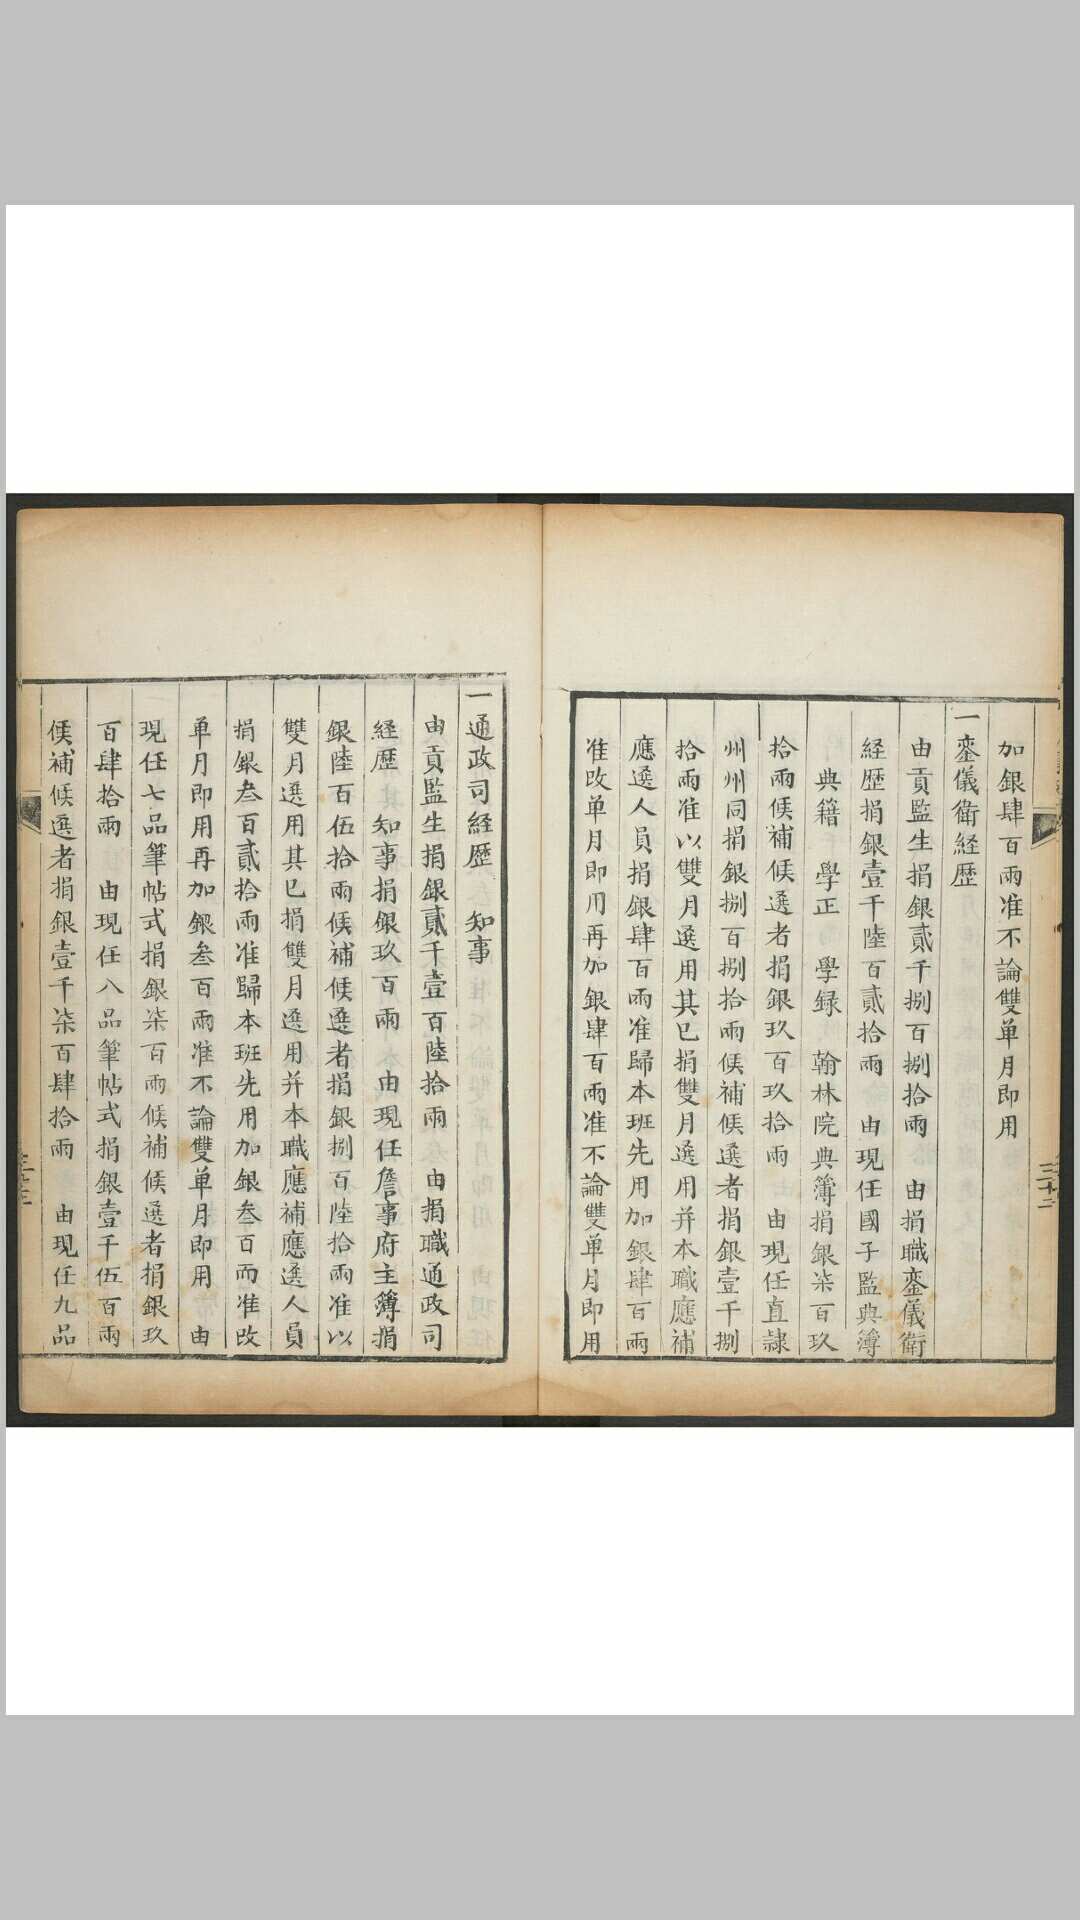 加銀肆百兩准不論雙单月即用
一鑾儀衛経歷
由貢監生捐銀貳千捌百捌拾兩　由捐職鑾儀衛
経歷捐銀壹千陸百貳拾兩　由現任國子監典簿
典籍　學正　學録　翰林院典簿捐銀柒百玖
拾兩候補候選者捐銀玖百玖拾兩　由現任直隸
州州同捐銀捌百捌拾兩候補候選者捐銀壹千捌
拾兩准以雙月選用其已捐雙月選用并本職應補
應選人員捐銀肆百兩准歸本班先用加銀肆百兩
准改单月即用再加銀肆百兩准不論雙单月即用
三十二
一通政司経歷　知事
由貢監生捐銀貳千壹百陸拾兩　由捐職通政司
経歷　知事捐銀玖百兩　由現任詹事府主簿捐
銀陸百伍拾兩候補候選者捐銀捌百陸拾兩准以
雙月選用其已捐雙月選用并本職應補應選人員
捐銀叁百貳拾兩准歸本班先用加銀叁百兩准改
单月即用再加銀叁百兩准不論雙单月即用　由
現任七品筆帖式捐銀柒百兩候補候選者捐銀玖
百肆拾兩　由現任八品筆帖式捐銀壹千伍百兩
候補候選者捐銀壹千柒百肆拾兩　由現任九品